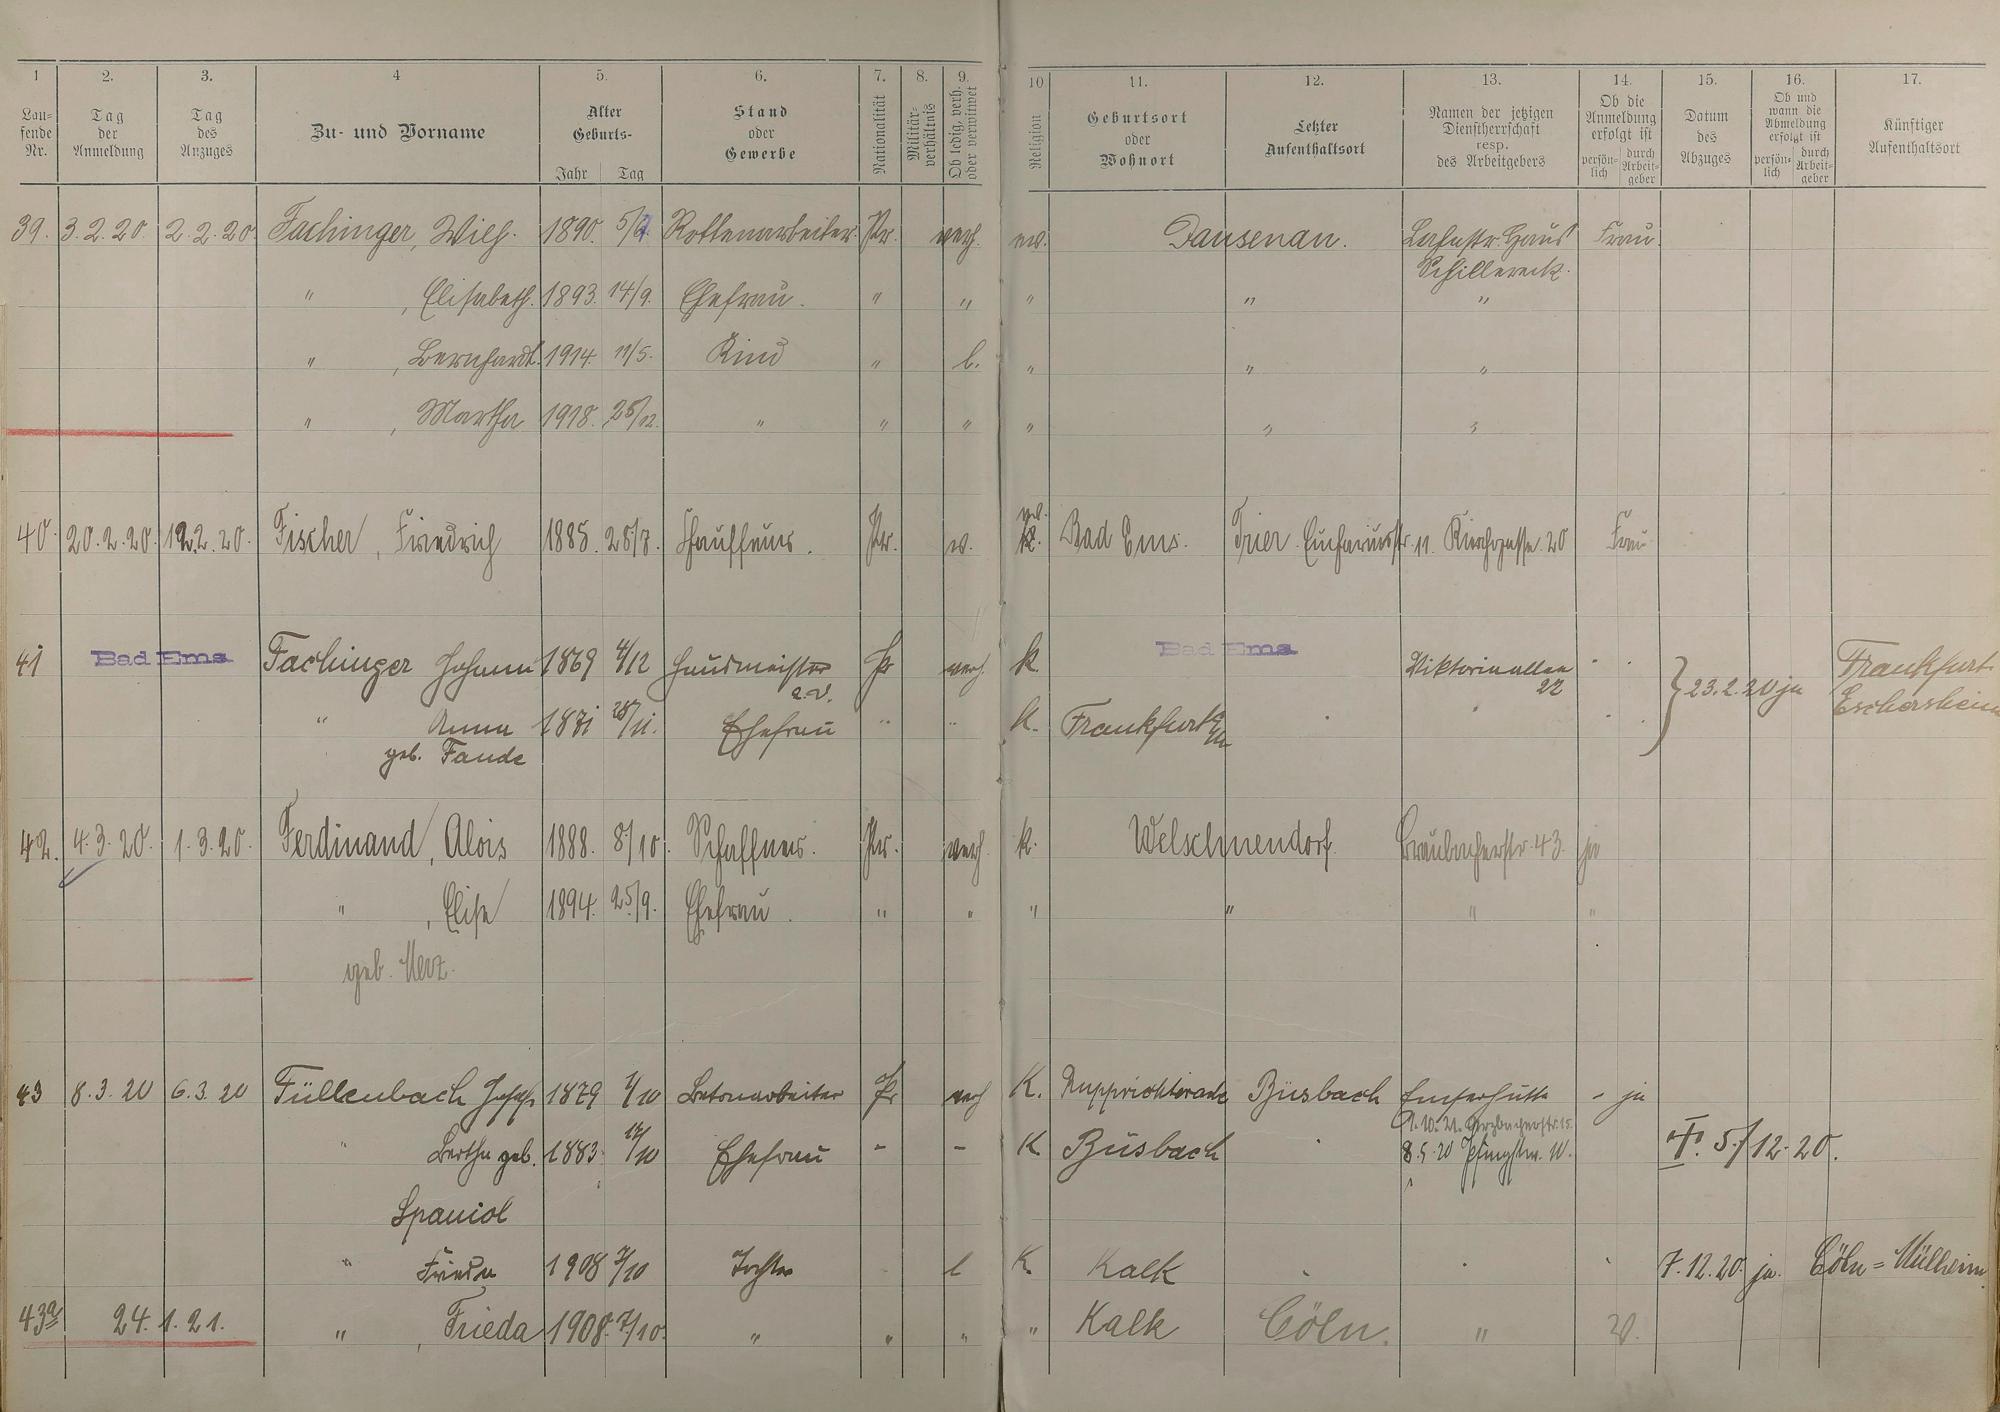 1 2. 3. 4 5. 6. 7. 8. 9. 10 11. 12. 13. 14. 15. 16. 17.
Lau-
fende
Nr.
Tag
der
Anmeldung
Tag
des
Anzuges
Zu- und Vorname
Alter
Geburts-
Jahr Tag
Stand
oder
Gewerbe
Nationalität
Militär-
verhältnis
Ob ledig, verh.
oder verwitwet
Religion
Geburtsort
oder
Wohnort
Letzter
Aufenthaltsort
Namen der jetzigen
Dienstherrschaft
resp.
des Arbeitgebers
Ob die
Anmeldung
erfolgt ist
persön-
lich
durch
Arbeit-
geber
Datum
des
Abzuges
Ob und
wann die
Abmeldung
erfolgt ist
persön-
lich
durch
Arbeit-
geber
Künftiger
Aufenthaltsort
39. 3.2.20. 2.2.20. Fachinger, Wilh. 1890. Rottenarbeiter. Pr. verh. ev. Dausenau. Lahnstr. Haus Frau.
Schillereck.
" , Elisabeth. 1893. 14/9. Ehefrau. " " " " "
" , Bernhardt. 1914. 11/5. Kind " l. " " "
" , Martha 1918. 25/12. " " " " " "
40. 20.2.20. 12.2.20. Fischer, Friedrich 1885. 28/7. Chauffeur. Pr. w. k. Bad Ems. Trier. Euchariusstr. 11. Kirchgasse 20 Frau
41 Bad Ems Fachinger Johann 1869 4/12 Hausmeister Pr verh. k. Bad Ems Viktoriaallee 22 23.2.20 ja Frankfurt
a.D. Eschersheim
" Anna 1871 28/11. Ehefrau " " k. Frankfurt a/M
geb. Fande
42. 4.3.20. 1.3.20. Ferdinand, Alois 1888. 8/10. Schaffner. Pr. verh. k. Welschneudorf. Braubacherstr. 43. ja
" , Elise 1894. 25/9. Ehefrau. " " " " " "
geb. Merz.
43 8.3.20 6.3.20 Füllenbach Joseph 1879 1/10 Betonarbeiter Pr verh K. Ruppichterode Büsbach Emserhütte - ja
" Bertha geb. 1883 17/10 Ehefrau - - K Büsbach 8.5.20 Pfingstw. 10. † 5/12.20.
Spaniol
" Frieda 1908 7/10 Tochter l K. Kalk 7.12.20. ja. Cöln=Mülheim.
43a 24.1.21. " , Frieda 1908. 7/10. " " " " Kalk Cöln. "